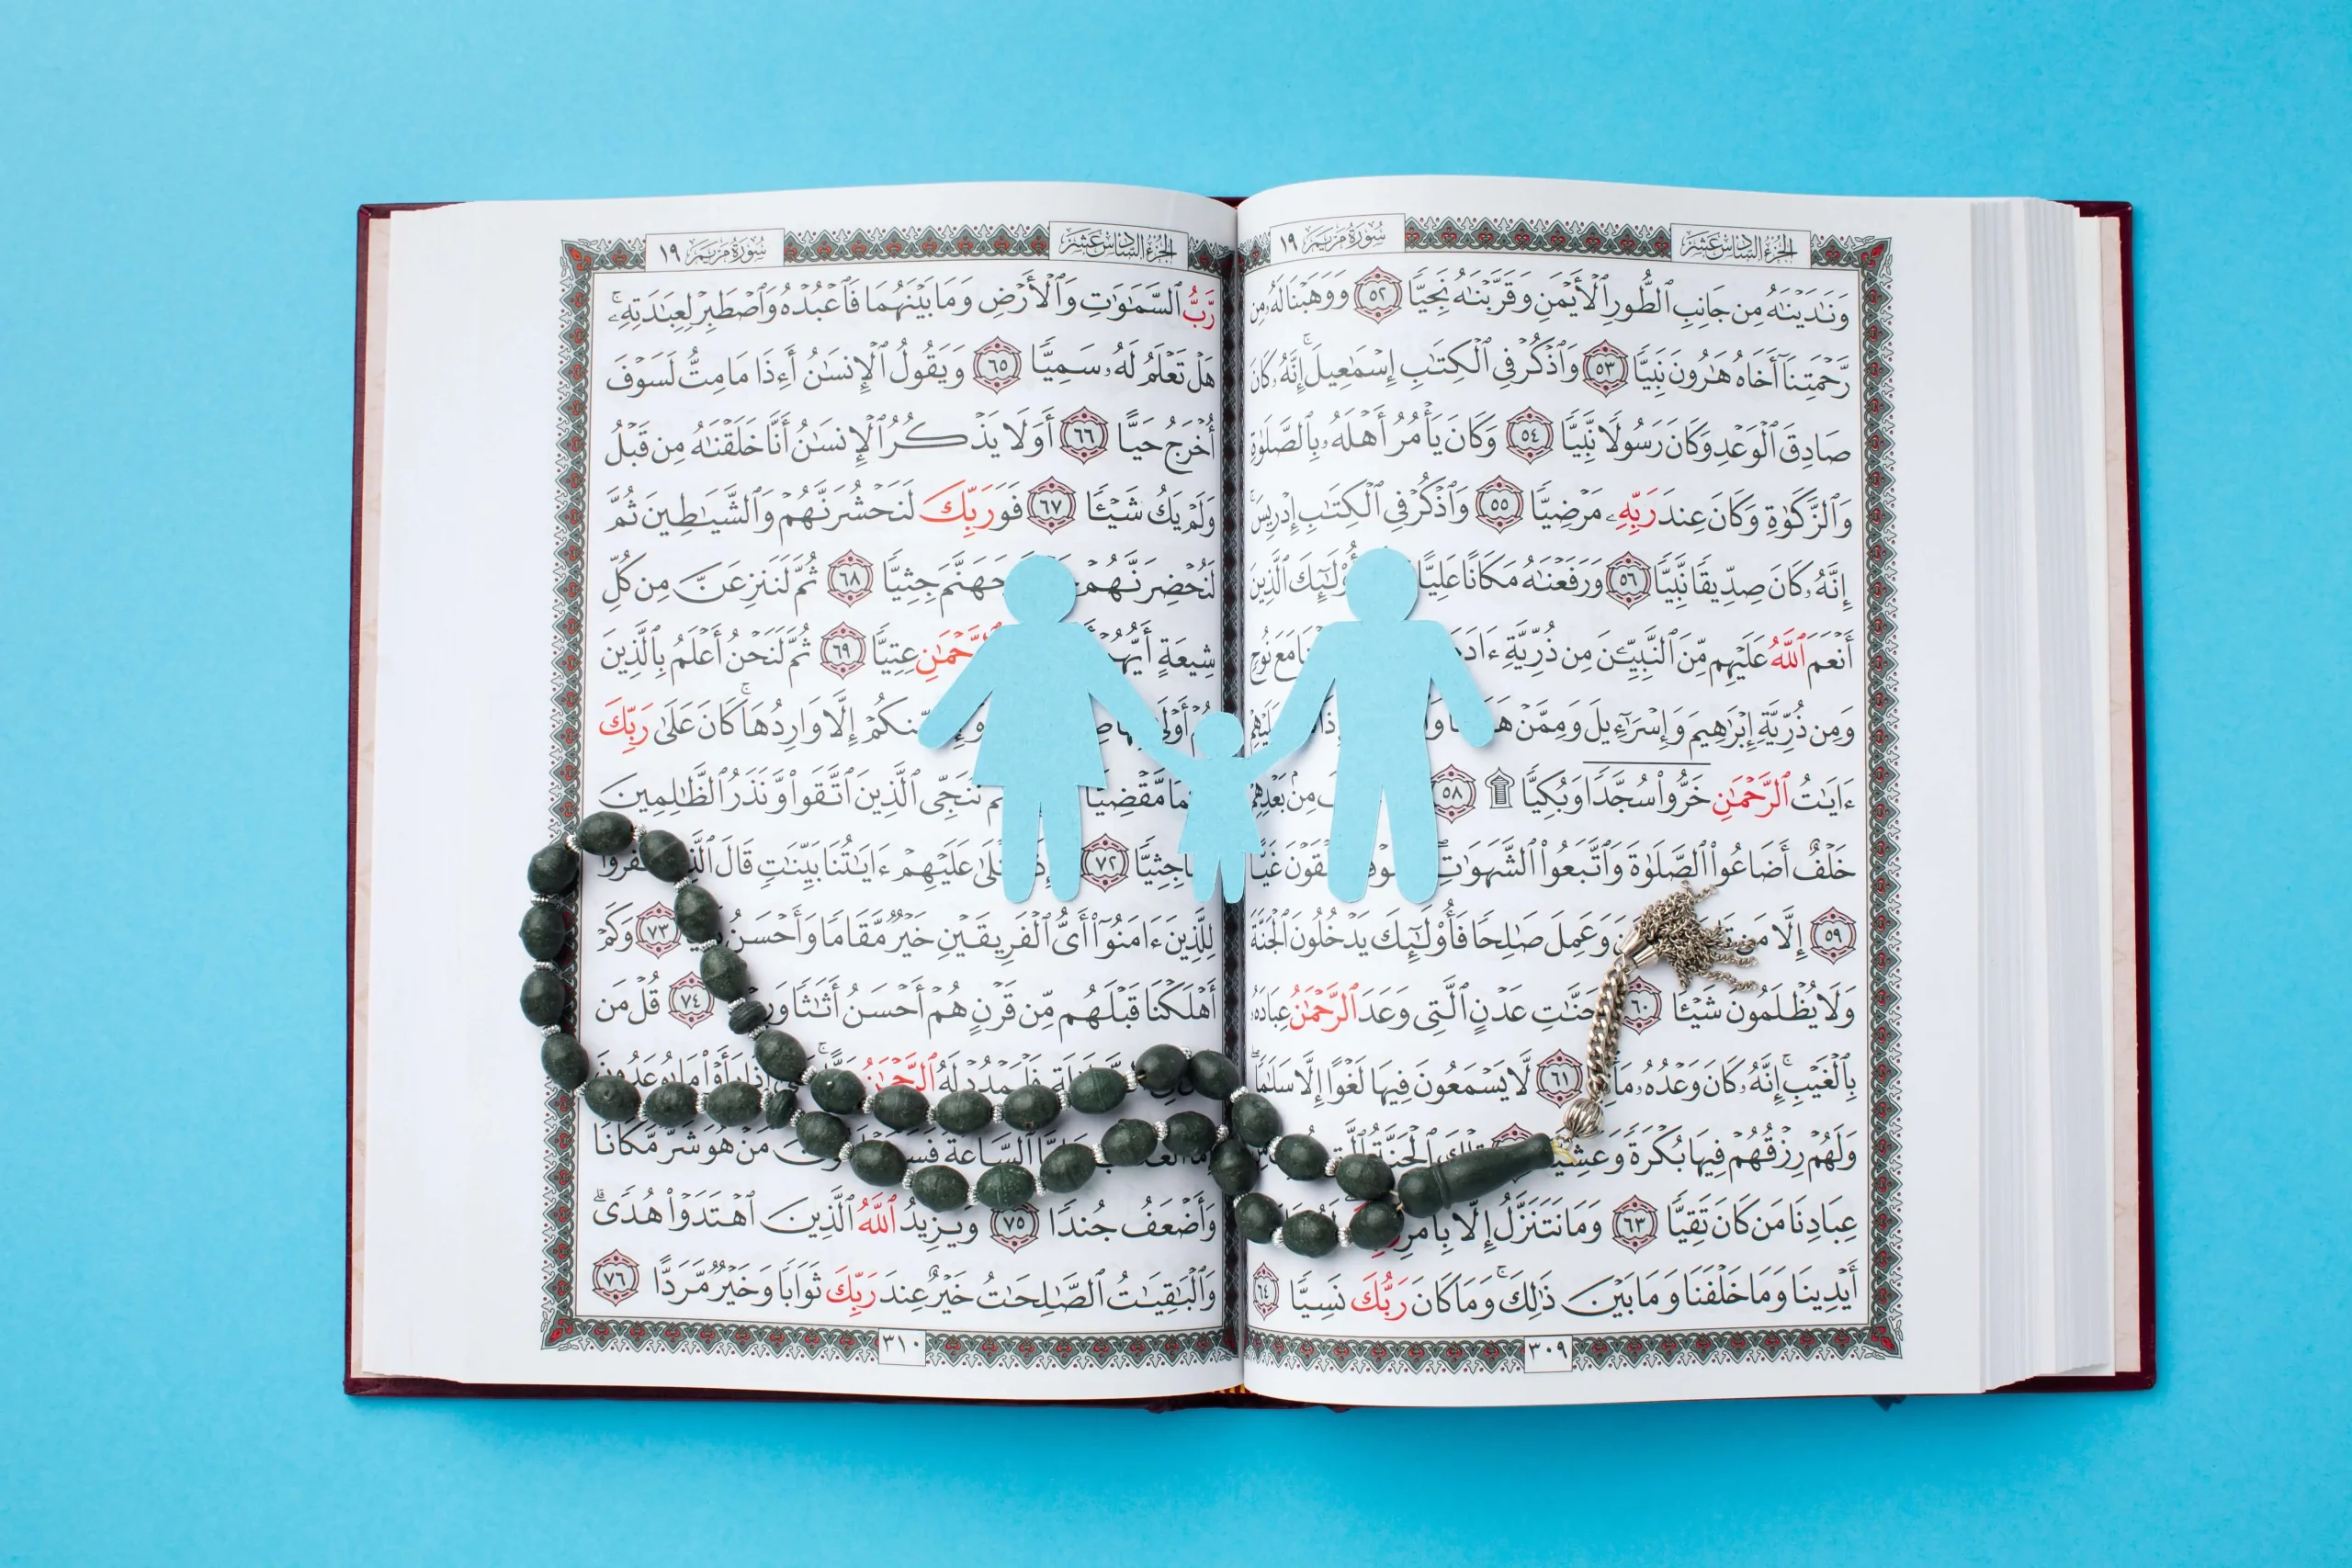 سُورَةُ مَرْيَمَ ١٩
الجُزْءُ السَّادِسَ عَشَرَ
وَنَـٰدَيْنَـٰهُ مِن جَانِبِ ٱلطُّورِ ٱلْأَيْمَنِ وَقَرَّبْنَـٰهُ نَجِيًّا ٥٢ وَوَهَبْنَا لَهُۥ مِن
رَّحْمَتِنَآ أَخَاهُ هَـٰرُونَ نَبِيًّا ٥٣ وَٱذْكُرْ فِى ٱلْكِتَـٰبِ إِسْمَـٰعِيلَ ۚ إِنَّهُۥ كَانَ
صَادِقَ ٱلْوَعْدِ وَكَانَ رَسُولًا نَّبِيًّا ٥٤ وَكَانَ يَأْمُرُ أَهْلَهُۥ بِٱلصَّلَوٰةِ
وَٱلزَّكَوٰةِ وَكَانَ عِندَ رَبِّهِۦ مَرْضِيًّا ٥٥ وَٱذْكُرْ فِى ٱلْكِتَـٰبِ إِدْرِيسَ ۚ
إِنَّهُۥ كَانَ صِدِّيقًا نَّبِيًّا ٥٦ وَرَفَعْنَـٰهُ مَكَانًا عَلِيًّا أُو۟لَـٰٓئِكَ ٱلَّذِينَ
أَنْعَمَ ٱللَّهُ عَلَيْهِم مِّنَ ٱلنَّبِيِّـۧنَ مِن ذُرِّيَّةِ مَعَ نُوحٍ
وَمِن ذُرِّيَّةِ إِبْرَٰهِيمَ وَإِسْرَٰٓءِيلَ وَمِمَّنْ
ءَايَـٰتُ ٱلرَّحْمَـٰنِ خَرُّوا۟ سُجَّدًا وَبُكِيًّا ۩ ٥٨ مِنۢ بَعْدِهِمْ
خَلْفٌ أَضَاعُوا۟ ٱلصَّلَوٰةَ وَٱتَّبَعُوا۟ ٱلشَّهَوَٰتِ ۖ غَيًّا
٥٩ إِلَّا مَن وَعَمِلَ صَـٰلِحًا فَأُو۟لَـٰٓئِكَ يَدْخُلُونَ ٱلْجَنَّةَ
وَلَا يُظْلَمُونَ شَيْـًٔا ٦٠ جَنَّـٰتِ عَدْنٍ ٱلَّتِى وَعَدَ ٱلرَّحْمَـٰنُ عِبَادَهُۥ
بِٱلْغَيْبِ ۚ إِنَّهُۥ كَانَ وَعْدُهُۥ ٦١ لَّا يَسْمَعُونَ فِيهَا لَغْوًا إِلَّا سَلَـٰمًا ۖ
وَلَهُمْ رِزْقُهُمْ فِيهَا بُكْرَةً ٱلْجَنَّةُ
عِبَادِنَا مَن كَانَ تَقِيًّا ٦٣ وَمَا نَتَنَزَّلُ إِلَّا بِأَمْرِ
أَيْدِينَا وَمَا خَلْفَنَا وَمَا بَيْنَ ذَٰلِكَ ۚ وَمَا كَانَ رَبُّكَ نَسِيًّا ٦٤
٣٠٩
سُورَةُ مَرْيَمَ ١٩
الجُزْءُ السَّادِسَ عَشَرَ
رَّبُّ ٱلسَّمَـٰوَٰتِ وَٱلْأَرْضِ وَمَا بَيْنَهُمَا فَٱعْبُدْهُ وَٱصْطَبِرْ لِعِبَـٰدَتِهِۦ ۚ
هَلْ تَعْلَمُ لَهُۥ سَمِيًّا ٦٥ وَيَقُولُ ٱلْإِنسَـٰنُ أَءِذَا مَا مِتُّ لَسَوْفَ
أُخْرَجُ حَيًّا ٦٦ أَوَلَا يَذْكُرُ ٱلْإِنسَـٰنُ أَنَّا خَلَقْنَـٰهُ مِن قَبْلُ
وَلَمْ يَكُ شَيْـًٔا ٦٧ فَوَرَبِّكَ لَنَحْشُرَنَّهُمْ وَٱلشَّيَـٰطِينَ ثُمَّ
لَنُحْضِرَنَّهُمْ جَهَنَّمَ جِثِيًّا ٦٨ ثُمَّ لَنَنزِعَنَّ مِن كُلِّ
شِيعَةٍ أَيُّهُمْ ٱلرَّحْمَـٰنِ عِتِيًّا ٦٩ ثُمَّ لَنَحْنُ أَعْلَمُ بِٱلَّذِينَ
مِّنكُمْ إِلَّا وَارِدُهَا ۚ كَانَ عَلَىٰ رَبِّكَ
مَّقْضِيًّا نُنَجِّى ٱلَّذِينَ ٱتَّقَوا۟ وَّنَذَرُ ٱلظَّـٰلِمِينَ
جِثِيًّا ٧٢ عَلَيْهِمْ ءَايَـٰتُنَا بَيِّنَـٰتٍ قَالَ
لِلَّذِينَ ءَامَنُوٓا۟ أَىُّ ٱلْفَرِيقَيْنِ خَيْرٌ مَّقَامًا وَأَحْسَنُ ٧٣ وَكَمْ
أَهْلَكْنَا قَبْلَهُم مِّن قَرْنٍ هُمْ أَحْسَنُ أَثَـٰثًا ٧٤ قُلْ مَن
ٱلرَّحْمَـٰنُ
ٱلسَّاعَةَ مَنْ هُوَ شَرٌّ مَّكَانًا
وَأَضْعَفُ جُندًا ٧٥ وَيَزِيدُ ٱللَّهُ ٱلَّذِينَ ٱهْتَدَوْا۟ هُدًى ۗ
وَٱلْبَـٰقِيَـٰتُ ٱلصَّـٰلِحَـٰتُ خَيْرٌ عِندَ رَبِّكَ ثَوَابًا وَخَيْرٌ مَّرَدًّا ٧٦
٣١٠